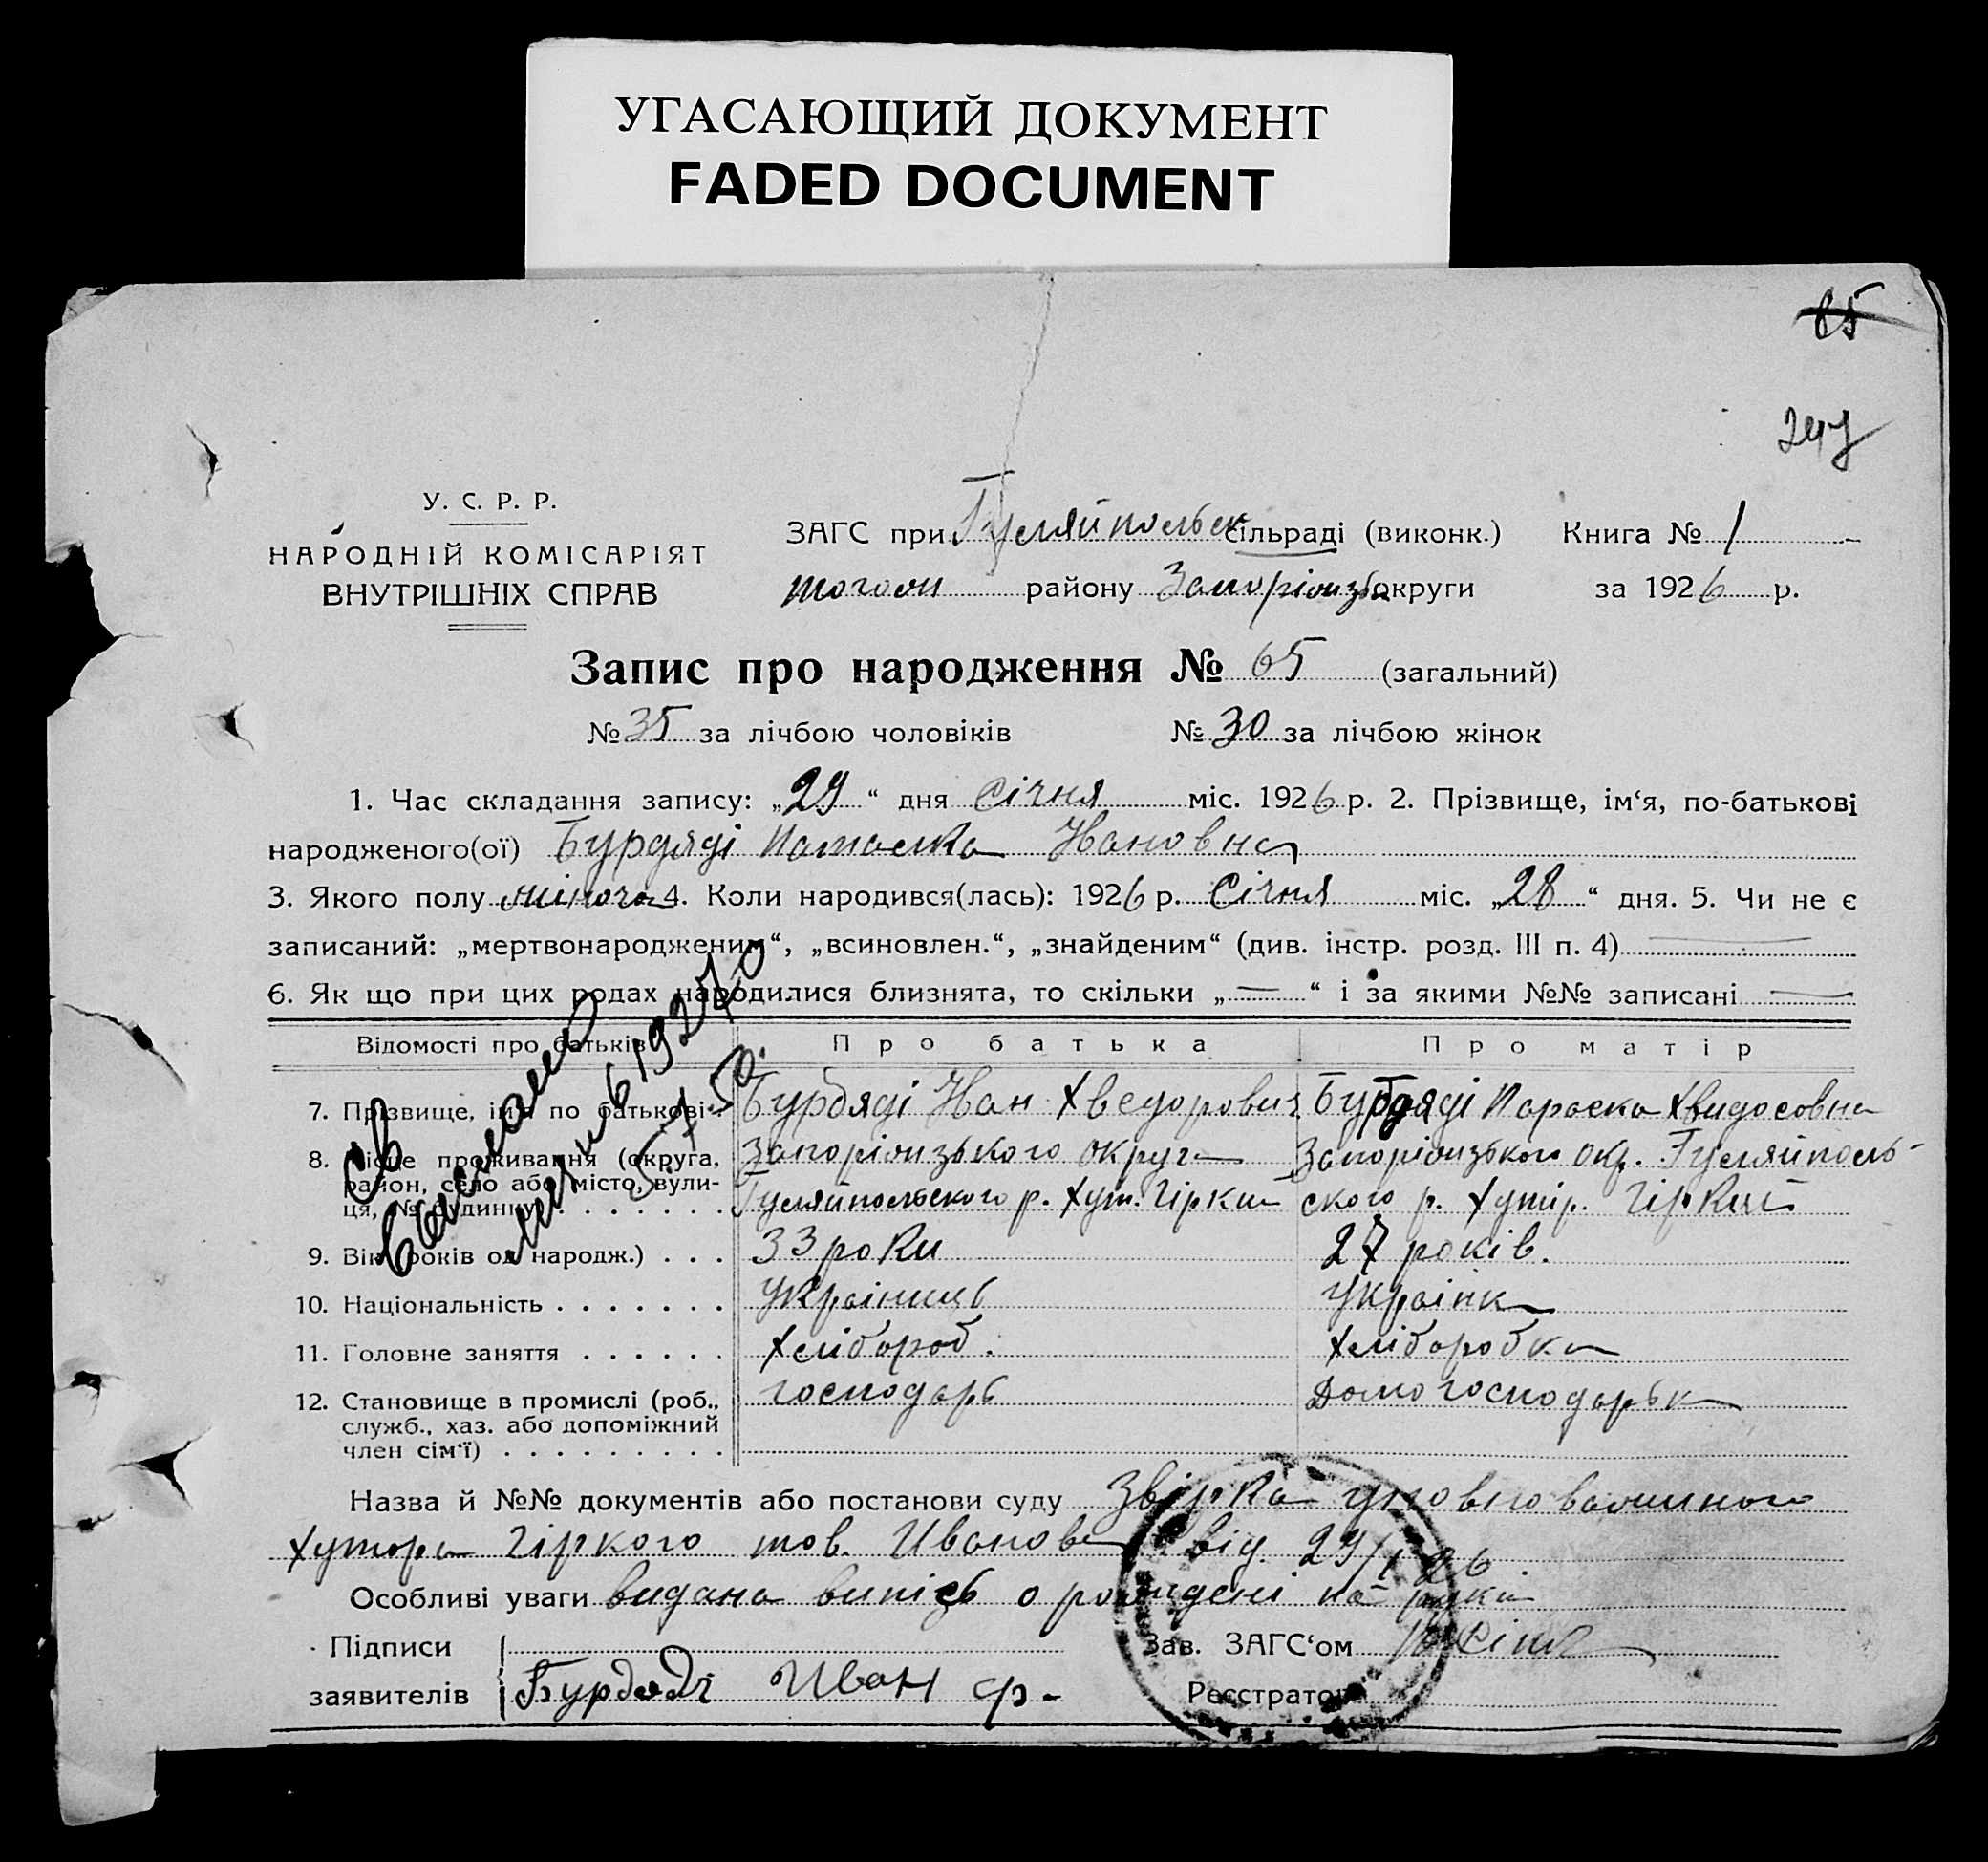 УГАСАЮЩИЙ ДОКУМЕНТ
FADED DOCUMENT
65
247
У. С. Р. Р.
НАРОДНІЙ КОМІСАРІЯТ
ВНУТРІШНІХ СПРАВ
ЗАГС при Гуляйпольск сільраді (виконк.) Книга № 1
району Запоріжзьк округи за 1926 р.
Запис про народження № 65 (загальний)
№ 35 за лічбою чоловіків № 30 за лічбою жінок
1. Час складання запису: „29“ дня Січня міс. 1926 р. 2. Прізвище, ім‘я, по-батькові
народженого(ої) Бурдяді Наталка Ивановна
3. Якого полу жіноча 4. Коли народився(лась): 1926 р. Січня міс. „28“ дня. 5. Чи не є
записаний: „мертвонародженим“, „всиновлен.“, „знайденим“ (див. інстр. розд. III п. 4)
6. Як що при цих родах народилися близнята, то скільки „—“ і за якими №№ записані —
Відомості про батьків Про батька Про матір
7. Прізвище, ім‘я по батькові Бурдяді Иван Хведорович Бурдяді Параска Хвидосовна
8. Місце проживання (округа, район, село або місто, вулиця, № будинку) Запоріжзького округа Гуляйпольского р. хут. Гіркий Запоріжзького окр. Гуляйпольського р. Хутір. Гіркий
9. Вік (років од народж.) 33 роки 27 років.
10. Національність Українець Українка
11. Головне заняття Хлібороб. Хліборобка
12. Становище в промислі (роб., служб., хаз. або допоміжний член сім‘ї) господарь Домогосподарька
Св
1927
Назва й №№ документів або постанови суду Звірка уповноваженого
Хутора Гіркого тов. Иванова від. 29/I 26
Особливі уваги видана випісь о рожидені на руки
Підписи Зав. ЗАГС‘ом
заявителів Бурдяді Иван Ф. Реєстратор